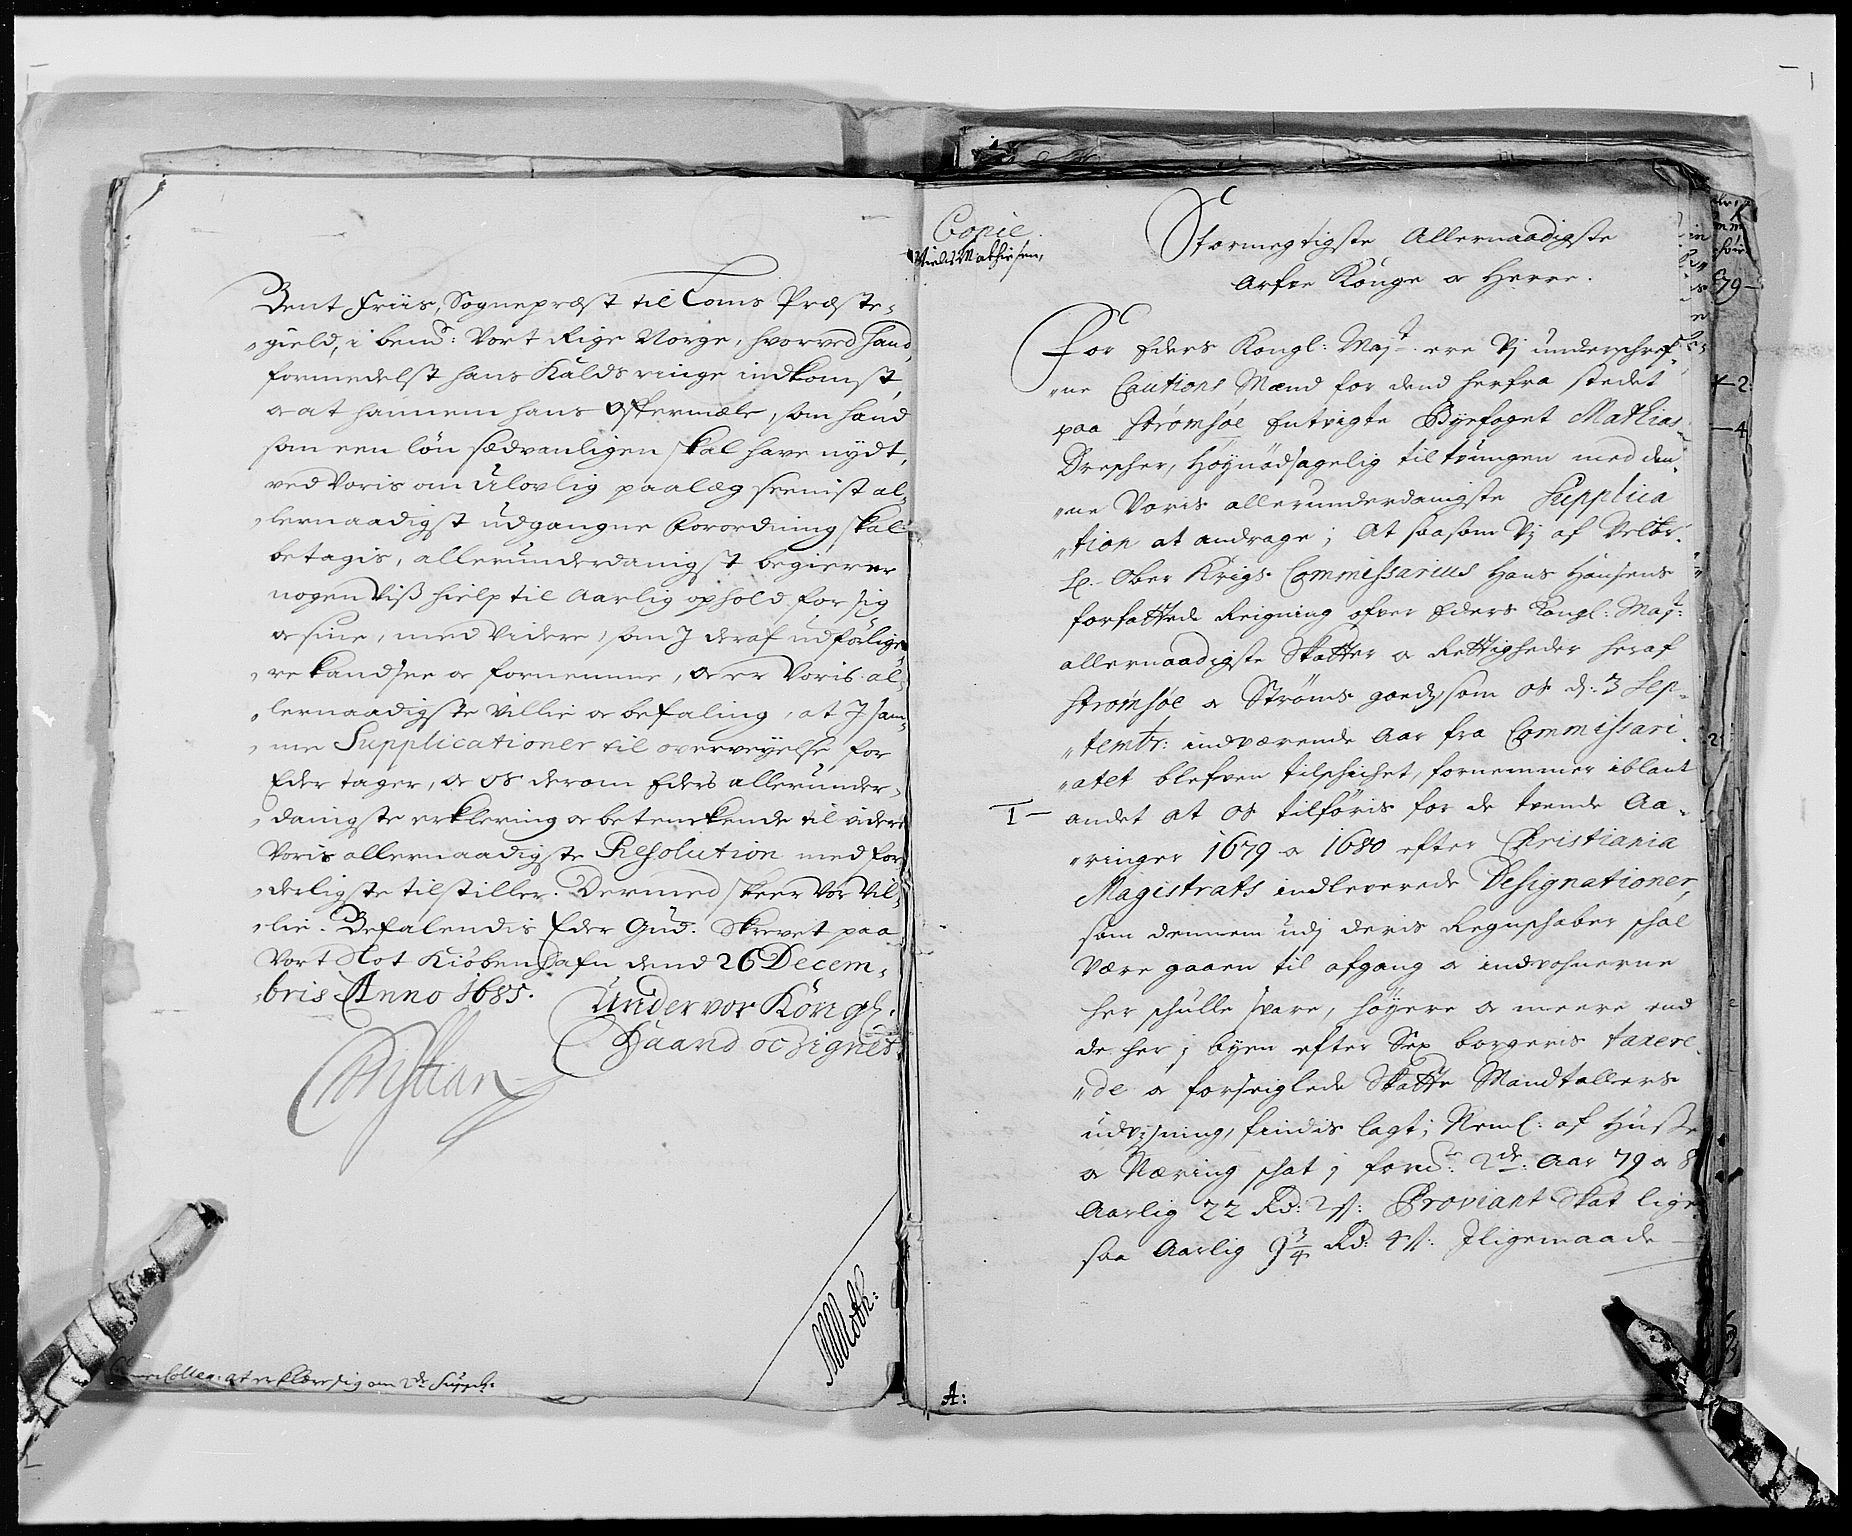 Bent Friis, Sognepræst til Loms Præste-
„gield, i bemd: Vort Rige Norge, hvorved hand,
formedelst hans Kalds ringe indkomst,
og at hannem hans Offermæle, som hand
som een løn sædvanligen skal have nydt,
ved Voris om Ulovlig paalæg seenist al-
„lernaadigst udgangne forordning skal
betagis, allerunderdanigst begierer
nogen Viß hielp til Aarlig ophold for sig
og sine, med Videre, som I deraf udførlige-
„re kand see og fornemme, og er Voris al-
„lernaadigste Villie og befaling, at I sam-
„me Supplicationer til overveyelse for
Eder tager, og os derom Eders allerunder-
„danigste erklering og betenckende til videre
Voris allernaadigste Resolution med for-
„derligste tilstiller. Dermed skeer Vor Vil-
„lie. Befalendis Eder Gud. Skrevet paa
Vort Slot Kiøbenhafn dend 26 Decem-
„bris Anno 1685.
Under vor Kongl:
Haand oc Signet.
Christian
MMoth:
at erklære sig om 2de Suppl:
Copie.
Niels Mathiesen,
Stormegtigste Allernaadigste
Arfve Konge og Herre.
For Eders Kongl: Mayt ere Vj underschref-
„ne Cautions Mænd for dend herfra stedet
paa Strømsøe Entvigte Byefoget Mathias
Drescher, Høynødsagelig tiltvungen med den-
„ne Voris allerunderdanigste Supplica
„tion at andrage; At saasom Vj af Velbr.
H. Ober Krigs Commissarius Hans Hansens
forfattede Reigning ofver Eders Kongl: Mayt:
allernaadigste Skatter og Rettigheder heraf
Strømsøe og Strøms goeds, som os d: 3 Sep-
„tembr: indværende Aar fra Commissari-
„atet blefven tilschichet, fornemmer iblant
I - andet at os tilføris for de tvende Aa-
„ringer 1679 og 1680 efter Christiania
Magistrats indleverede Designationer,
som dennem udj deris Regnschaber schal
være gaaen til afgang og indvohnerne
her schulle svare, høyere og meere end
de her i byen efter Sex borgeris taxere-
„de og forseiglede Skatte Mandtallers
udvisning, findis lagt; Neml: af Huß
og Næring schat i formte 2de: Aar 79 og 8
Aarlig 22 Rd: 2 ß: Proviant Skat lige
saa Aarlig 9 3/4 Rd: 4 ß: Iligemaade
A: